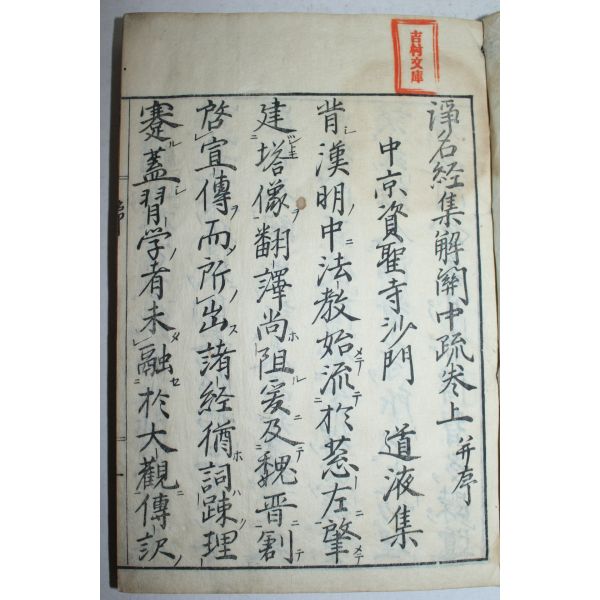 吉村文庫
諍名経集解關中疏巻上 并序
中京資聖寺沙門 道液集
昔漢明中法教始流於葱左肇
建塔像翻譯尚阻爰及魏晋創
啓宣傳而所出諸経猶詞踈理
蹇蓋習学者未融於大觀傳訳